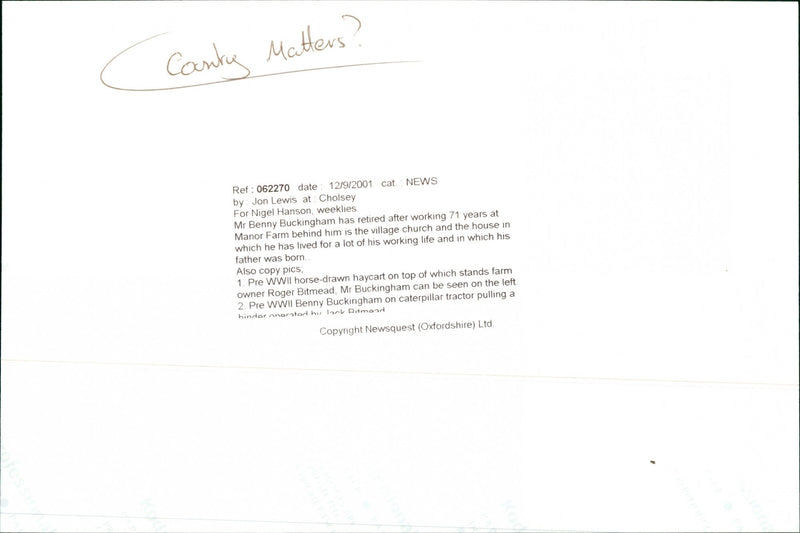 Country Matters?
Ref : 062270 date : 12/9/2001 cat : NEWS
by : Jon Lewis at : Cholsey
For Nigel Hanson, weeklies.
Mr Benny Buckingham has retired after working 71 years at
Manor Farm behind him is the village church and the house in
which he has lived for a lot of his working life and in which his
father was born.
Also copy pics;
1. Pre WWII horse-drawn haycart on top of which stands farm
owner Roger Bitmead, Mr Buckingham can be seen on the left.
2. Pre WWII Benny Buckingham on caterpillar tractor pulling a
binder operated by Jack Bitmead
Copyright Newsquest (Oxfordshire) Ltd.